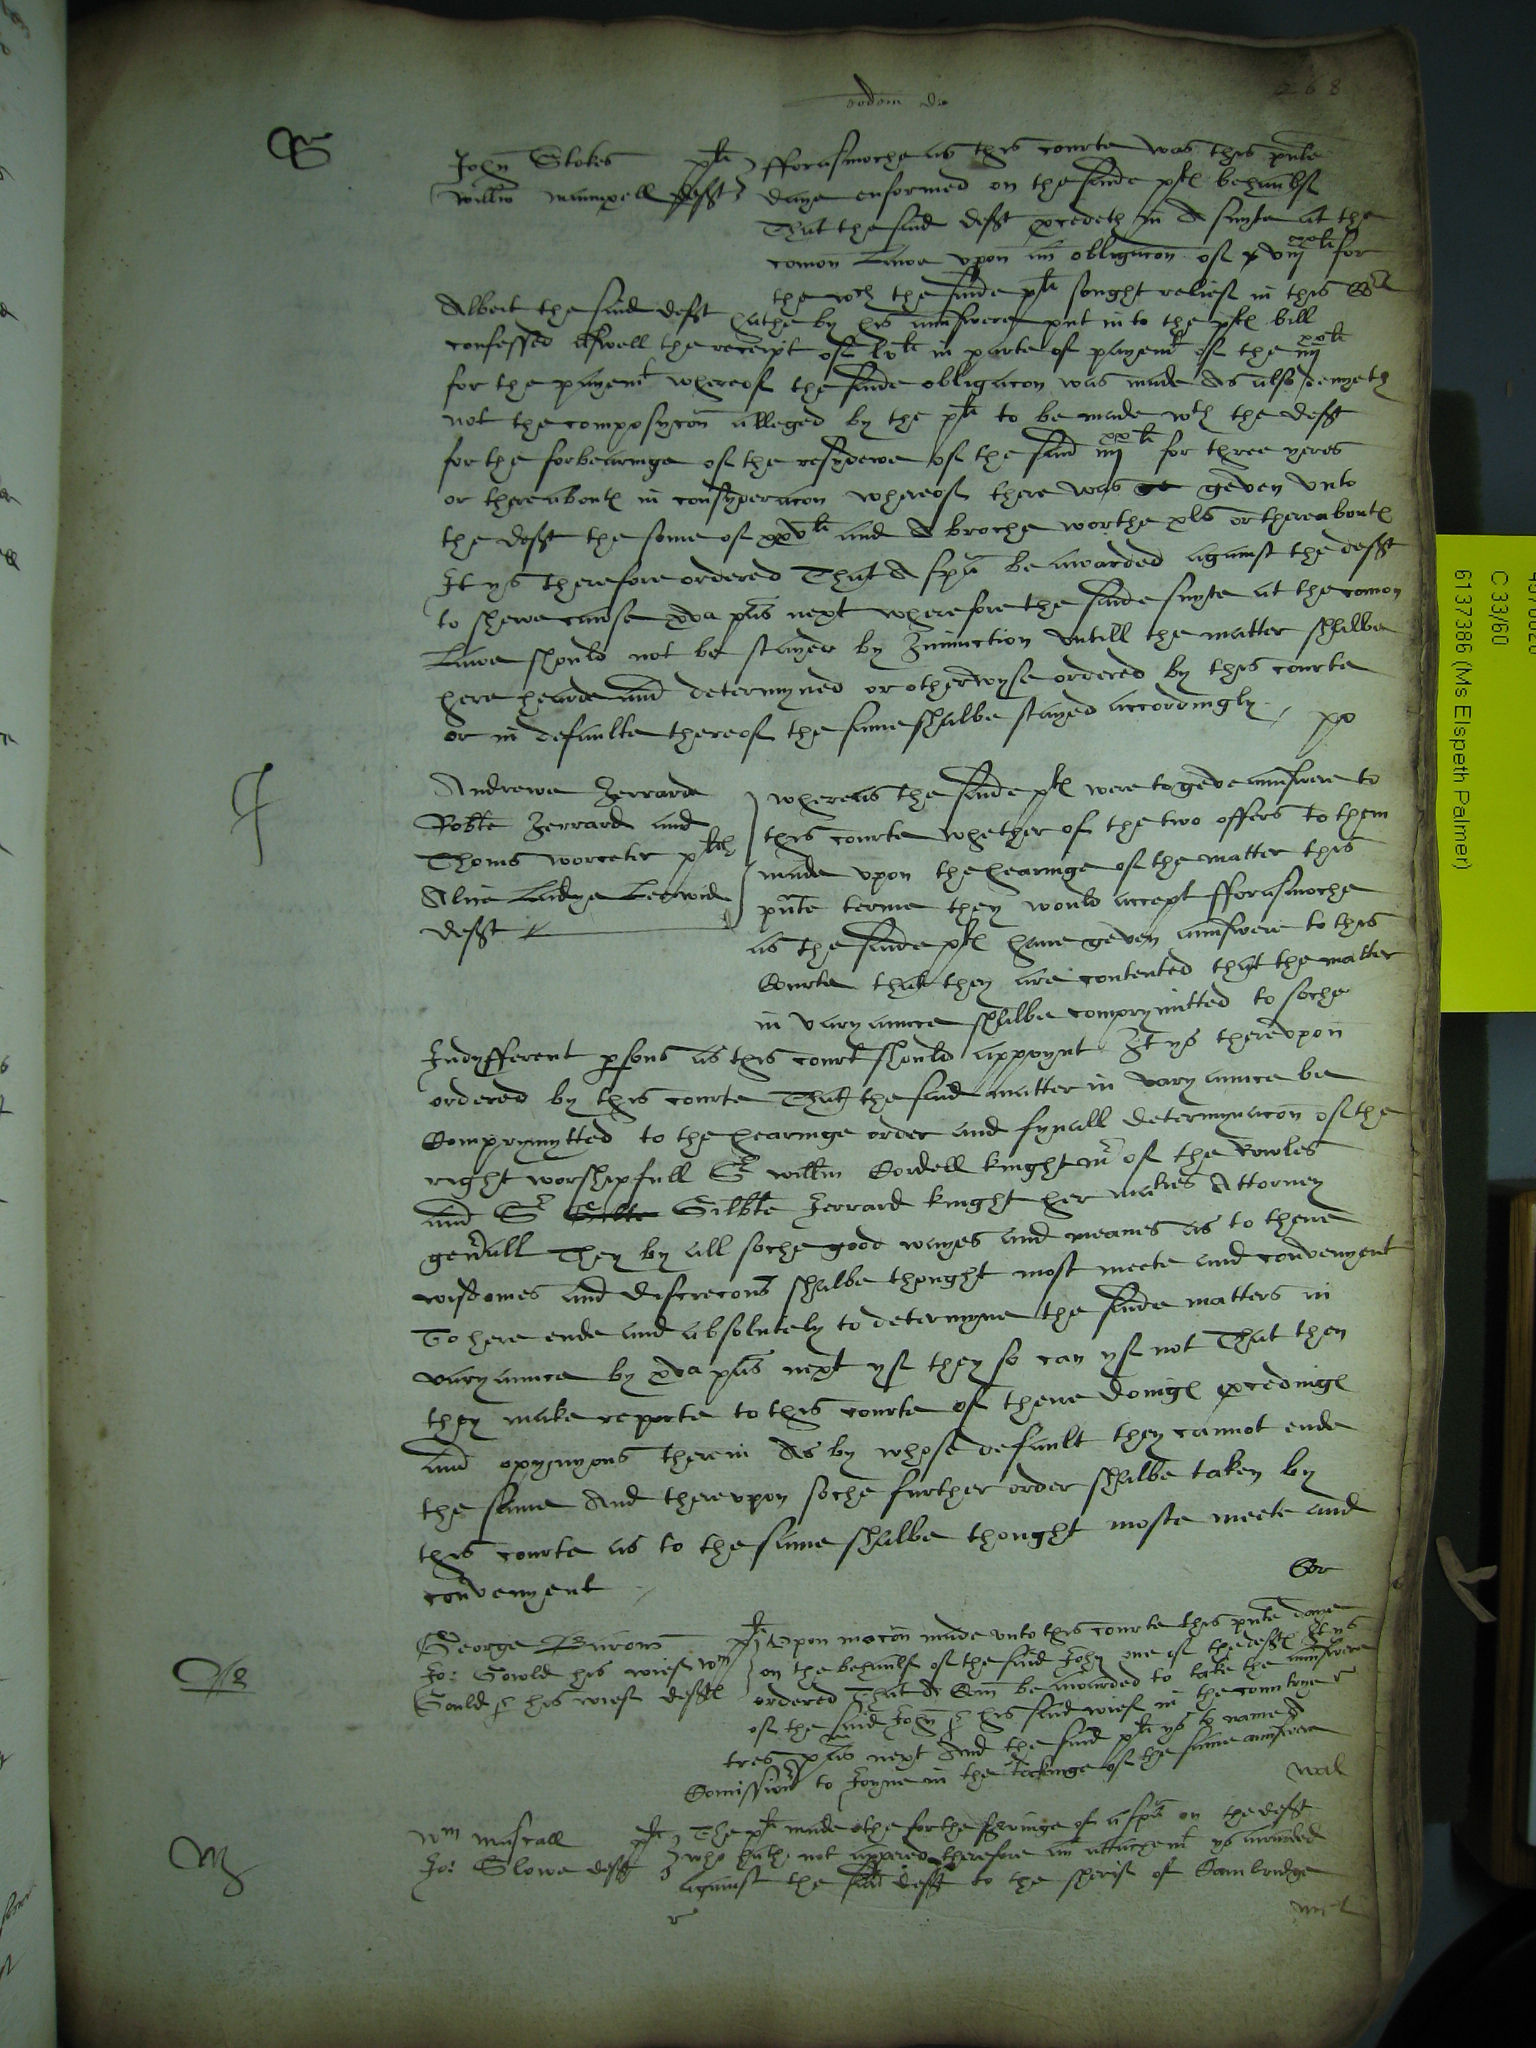 eodem die
268
S
John Stokes plt
willm maunxell deft
fforasmoche as this courte was this pnte
daye enformed on the saide pltes behaulf
That the said deft procedeth in A suyte at the
comon Lawe vpon an obligacon of viij xx li for
the wch the saide plt sought relief in this Co
Albeit the said deft hathe by his aunswere put in to the pltes bill
confessed aswell the receipt of lv li in parte of payemt of the iiij xx li
for the payemt whereof the saide obligacon was made As also denyeth
not the composycon alleged by the plt to be made wth the deft
for the forbearinge of the resydewe of the said iiij xx li for three yeres
or thereaboutes in consyderacon whereof there was geven vnto
the deft the some of xxv li and A broche worthe xls or thereaboutes
It ys therefore ordered That A spa be awarded against the deft
to shewe cause xva pas next wherefore the saide suyte at the comon
Lawe should not be stayed by Iniunction vntill the matter shalbe
here hearde and determyned or otherwyse ordered by this courte
or in defaulte thereof the same shalbe stayed accordingly
J
Andrewe Jerrarde
Robte Jerrard and
Thoms worcetir pltes
Alice Ladye Lee wid
deft
whereas the saide pltes were to geve aunswere to
this courte whether of the two offers to them
made vpon the hearinge of the matter this
pnte terme they would accept fforasmoche
as the saide pltes haue geven aunswere to this
Courte that they are contented that the matter
in varyaunce shalbe comprymitted to soche
Indyfferent psons as this court should appoynt It ys therevpon
ordered by this courte That the said matter in varyaunce be
Comprymytted to the hearinge order and fynall determynacon of the
right worshipfull Sr willm Cordell knight mr of the Rowles
and Sr Gilbte Jerrard knight her maties Attorney
generall They by all soche good wayes and meanes as to there
wisdomes and discrecons shalbe thought most meete and convenyent
To here ende and absolutely to determyne the saide matters in
varyaunce by xva pas next yf they so can yf not That then
they make reporte to this courte of there doinges procedinges
and opynyons therein As by whose default they cannot ende
the same And therevpon soche further order shalbe taken by
this courte as to the same shalbe thought moste meete and
convenyent
Cor
George Burom plt
Jo: Gowld his wief wm
Gould & his wief deftes
Vpon mocon made vnto this courte this pnte daye
on the behaulf of the said John one of the deftes It ys
ordered That A Com be awarded to take the aunswere
of the said John & his said wief in the countrye
tres pas next And the said plt ys to name A
Comissionr to Joyne in the takinge of the same aunswere
wal
M
Wm Mascall plt
Jo: Slowe deft
The plt made othe for the servinge of a spa on the deft
who hath not appered therefore an attachemt ys awarded
against the said deft to the sherif of Cambridge
C 33/60
6137386 (Ms Elspeth Palmer)